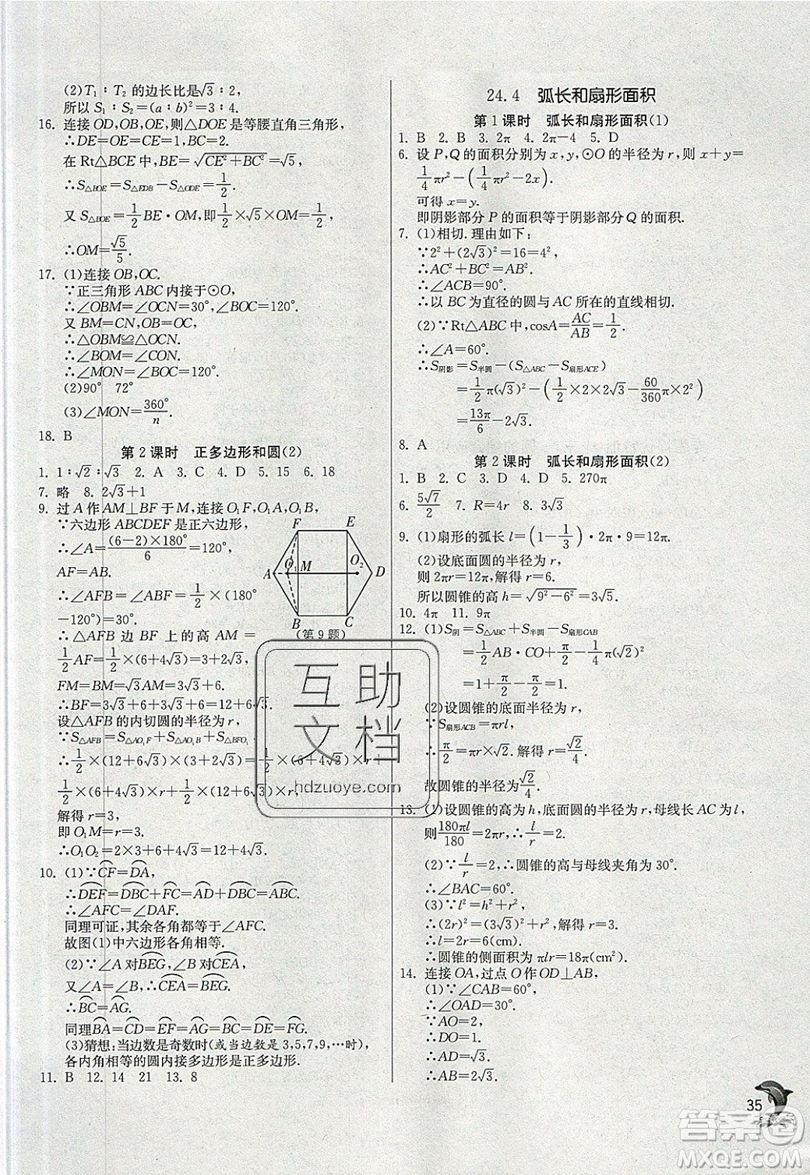 (2)T₁∶T₂ 的边长比是√3∶2,
所以 S₁∶S₂=(a∶b)²=3∶4.
16. 连接 OD,OB,OE,则△DOE 是等腰直角三角形,
∴BC=2,CE=1.
在 Rt△BCE 中,BE=√(CE²+BC²)=√5.
∴S△BOE=S△EDB-S△ODE=1/2.
又 S△BOE=1/2 BE·OM,即1/2×√5×OM=1/2,
∴OM=√5/5.
17. (1)连接 OB,OC.
∵正三角形 ABC 内接于⊙O,
∴∠OBM=∠OCN=30°,∠BOC=120°.
又 BM=CN,OB=OC,
∴△OBM≌△OCN.
∴∠MON=∠BOC=120°.
(2)90° 72°
(3)∠MON=360°/n
18. B
第 2 课时 正多边形和圆(2)
1. 1∶√2∶√3 2. A 3. C 4. D 5. 15 6. 18
7. 略 8. 2√3+1
9. 过 A 作 AM⊥BF 于 M,连接 O₁F,O₁A,O₁B,
∵六边形 ABCDEF 是正六边形,
∴∠A=(6-2)×180°/6=120°,
AF=AB.
∴∠AFB=∠ABF=1/2×(180°
-120°)=30°.
∴△AFB 边 BF 上的高 AM=
1/2AF=1/2×(6+4√3)=3+2√3,
FM=BM=√3AM=3√3+6.
设△AFB 的内切圆的半径为 r,
∵S△AFB=S△AO₁F+S△AO₁B+S△BFO₁
∴1/2×(3+2√3)×(12+6√3)=1/2×(6+4√3)×r+
1/2×(6+4√3)×r+1/2×(12+6√3)×r,
解得 r=3.
即 O₁M=r=3.
∴O₁O₂=2×3+6+4√3=12+4√3.
10. (1)∵⌒CF=⌒DA,
∴⌒DEF=⌒DAF+⌒DBC=⌒DBC+⌒CF=⌒ABC.
∴∠AFC=∠DAF.
同理可证,其余各角都等于∠AFC.
故图(1)中六边形各角相等.
(2)∵∠A对⌒BEG,∠B对⌒CEA,
又∵∠A=∠B,∴⌒CEA=⌒BEG.
∴⌒BC=⌒AG.
同理⌒BA=⌒CD=⌒EF=⌒AG=⌒BC=⌒DE=⌒FG.
(3)猜想:当边数是奇数时(或当边数是3,5,7,9,…时),
各内角相等的圆内接多边形是正多边形.
11. B 12. 14 21 13. 8
F E
A O₁ M O₂ D
B C
(第 9 题)
24.4 弧长和扇形面积
第 1 课时 弧长和扇形面积(1)
1. B 2. B 3. 2π 4. 2π-4 5. D
6. 设 P,Q 的面积分别为 x,y,⊙O 的半径为 r,则 x-y=
1/4πr²-(1/4πr²-2x).
可得 x=y.
即阴影部分 P 的面积等于阴影部分 Q 的面积.
7. (1)相切.理由如下:
∵2²+(2√3)²=16=4²,
∴AC²+BC²=AB².
∴∠ACB=90°.
∴以 BC 为直径的圆与 AC 所在的直线相切.
(2)∵Rt△ABC 中,cosA=AC/AB=1/2.
∴∠A=60°.
∴S阴影=S半圆-(S△ABC-S扇形ACE)
=1/2π(√3)²-(1/2×2×2√3-60/360π×2²)
=13π/6-2√3.
8. A
第 2 课时 弧长和扇形面积(2)
1. B 2. C 3. D 4. D 5. 270π
6. 5√7/2 7. R=4r 8. 3√3
9. (1)扇形的弧长 l=(1-1/3)·2π·9=12π.
(2)设底面圆的半径为 r,
则 2πr=12π,解得 r=6.
所以圆锥的高 h=√(9²-6²)=3√5.
10. 4π 11. 9π
12. (1)S阴=S△ABC+S半圆-S扇形CAB
=1/2AB·CO+1/2π-1/4π(√2)²
=1+π/2-π/2=1.
(2)设圆锥的底面半径为 r,
∵S扇形=πrl,
∴π/2=π×√2r.解得 r=√2/4.
故圆锥的半径为√2/4.
13. (1)设圆锥的高为 h,底面圆的半径为 r,母线长 AC 为 l,
则180πl/180=2πr,l/r=2.
(2)∵l/r=2,∴圆锥的高与母线夹角为30°.
∴∠BAC=60°.
(3)∵l²=h²+r²,
∴(2r)²=(3√3)²+r²,解得 r=3(cm).
∴l=2r=6(cm).
∴圆锥的侧面积为πlr=18π(cm²).
14. 连接 OA,过点 O 作 OD⊥AB,
(1)∵∠CAB=60°,
∴∠OAD=30°.
∵AO=2,
∴DO=1.
∴AD=√3.
∴AB=2√3.
35
互助
文档
hdzuoye.com
答案圈
MXQE.COM